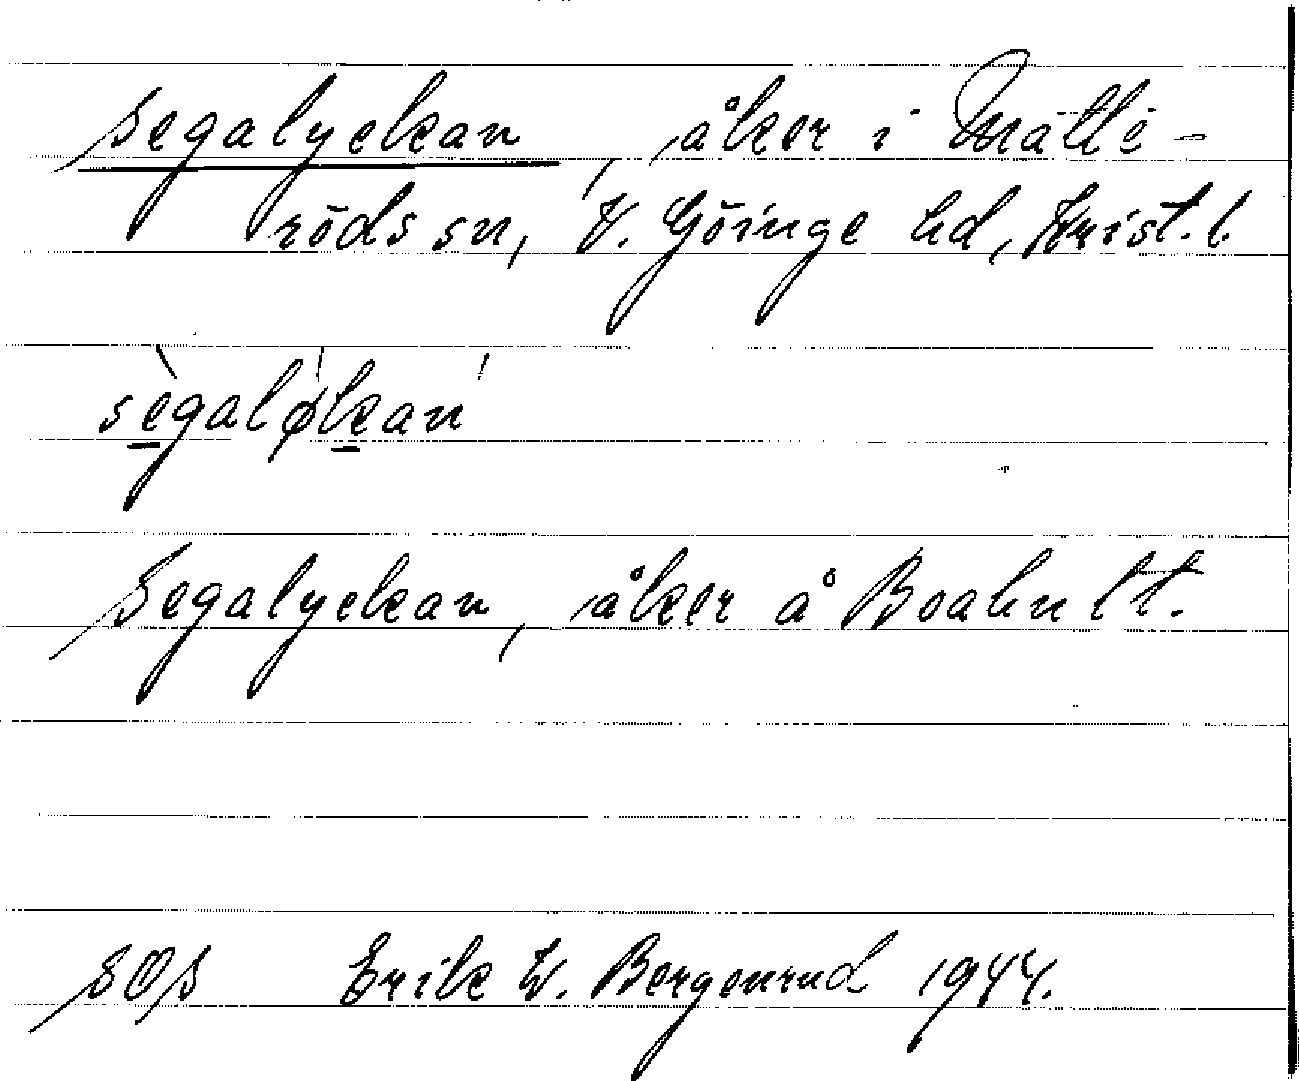 Segalyckan, åker i Mattе-
röds sn, V. Göinge hd, Krist. l.
sègaløkan
Segalyckan, åker å Boahult.
SOS Erik W. Bergenrud 1944.